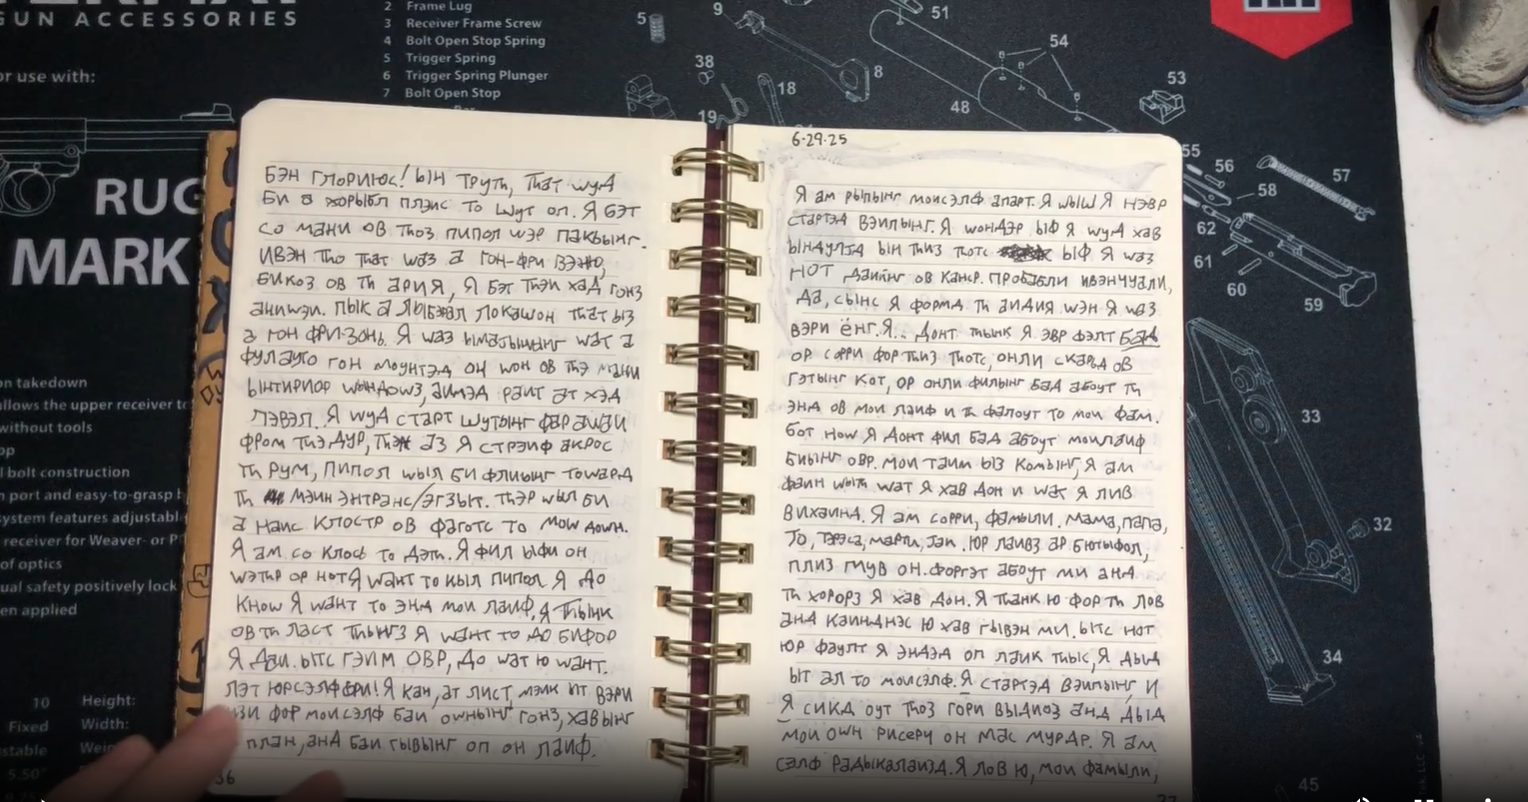 GUN ACCESSORIES
or use with:
RUG
MARK
2 Frame Lug
3 Receiver Frame Screw
4 Bolt Open Stop Spring
5 Trigger Spring
6 Trigger Spring Plunger
7 Bolt Open Stop
5
9
8
38
18
19
51
54
48
53
55
56
57
58
62
61
60
59
33
32
34
45
on takedown
llows the upper receiver to
without tools
bolt construction
port and easy-to-grasp
ystem features adjustabl
receiver for Weaver- or P
of optics
ual safety positively lock
en applied
10 Height:
Fixed Width:
stable
5.50"
БЭН ГЛОРИЮС! ЫН ТРУТҺ, ТҺАТ WУД
БИ А ХОРЫБЛ ПЛЭИС ТО ШУТ ОП. Я БЭТ
СО МАНИ ОВ ТҺОЗ ПИПОЛ WЭР ПАКЫНГ.
ИВЭН ТҺО ТҺАТ WАЗ А ГОН-ФРИ
БИКОЗ ОВ ТҺ АРИЯ, Я БЭТ ТҺЭИ ХАД ГОНЗ
АНИWЭИ. ПЫК А ЛОКАШОН ТҺАТ ЫЗ
А ГОН ФРИ-ЗОНЬ. Я WАЗ WАТ А
ФУЛАУТО ГОН МОУНТЭД ОН WОН ОВ ТҺЭ МАНИ
ЫНТИРИОР WЫНДОWЗ, АИМЭД РАИТ АТ ХЭД
ЛЭВЭЛ. Я WУД СТАРТ ШУТЫНГ ФАР АWАИ
ФРОМ ТҺЭ ДУР, ТҺЭН АЗ Я СТРЭИФ АКРОС
ТҺ РУМ, ПИПОЛ WЫЛ БИ ФЛИЫНГ ТОWАРД
ТҺ МЭИН ЭНТРЭНС/ЭГЗЫТ. ТҺЭР WЫЛ БИ
А НАИС КЛОСТР ОВ ФАГОТС ТО МОW ДОWН.
Я АМ СО КЛОСЬ ТО ДЭТҺ. Я ФИЛ ЫФИ ОН
WЭТҺР ОР НОТ Я WАНТ ТО КЫЛ ПИПОЛ. Я ДО
КНОW Я WАНТ ТО ЭНД МОИ ЛАИФ. Я ТҺЫНК
ОВ ТҺ ЛАСТ ТҺЫНГЗ Я WАНТ ТО ДО БИФОР
Я ДАИ. ЫТС ГЭИМ ОВР, ДО WАТ Ю WАНТ.
ЛЭТ ЮРСЭЛФ ФРИ! Я КАН, АТ ЛИСТ, МЭИК ЫТ ВЭРИ
ИЗИ ФОР МОИСЭЛФ БАИ ОWНЫНГ ГОНЗ, ХАВЫНГ
ПЛАН, АНД БАИ ГЫВЫНГ ОП ОН ЛАИФ.
36
6-29-25
Я АМ РЫПЫНГ МОИСЭЛФ АПАРТ. Я WЫШ Я НЭВР
СТАРТЭД ВЭИПЫНГ. Я WОНДЭР ЫФ Я WУД ХАВ
ЫНДУЛГД ЫН ТҺИЗ ТҺОТС ЫФ Я WАЗ
НОТ ДАИИНГ ОВ КАНСР. ПРОБАБЛИ ИВЭНЧУАЛИ,
ДА, СЫНС Я ФОРМД ТҺ АИДИЯ WЭН Я WАЗ
ВЭРИ ЁНГ. Я.. ДОНТ ТҺЫНК Я ЭВР ФЭЛТ БАД
ОР СОРРИ ФОР ТҺИЗ ТҺОТС, ОНЛИ СКАРЬД ОВ
ГЭТЫНГ КОТ, ОР ОНЛИ ФИЛЫНГ БАД АБОУТ ТҺ
ЭНД ОВ МОИ ЛАИФ И ТҺ ФАЛОУТ ТО МОИ ФАМ.
БОТ НОW Я ДОНТ ФИЛ БАД АБОУТ МОИ ЛАИФ
БИЫНГ ОВР. МОИ ТАИМ ЫЗ КОМЫНГ, Я АМ
ФАИН WЫТҺ WАТ Я ХАВ ДОН И WАТ Я ЛИВ
ВИХАИНД. Я АМ СОРРИ, ФАМЫЛИ. МАМА, ПАПА,
ЮР ЛАИВЗ АР БЮТЫФОЛ,
ПЛИЗ МУВ ОН. ФОРГЭТ АБОУТ МИ АНД
ТҺ ХОРОРЗ Я ХАВ ДОН. Я ТҺАНК Ю ФОР ТҺ ЛОВ
АНД КАИНДНЭС Ю ХАВ ГЫВЭН МИ. ЫТС НОТ
ЮР ФАУЛТ Я ЭНДЭД ОП ЛАИК ТҺЫС, Я ДЫД
ЫТ АЛ ТО МОИСЭЛФ. Я СТАРТЭД ВЭИПЫНГ И
Я СИКД ОУТ ТҺОЗ ГОРИ ВЫДИОЗ АНД ДЫД
МОИ ОWН РИСЕРЧ ОН МАС МУРДР. Я АМ
СЭЛФ РАДЫКАЛАИЗД. Я ЛОВ Ю, МОИ ФАМЫЛИ,